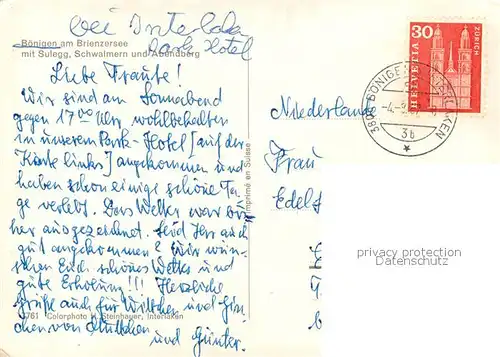 bei Interlaken
Parkhotel
Bönigen am Brienzersee
mit Sulegg, Schwalmern und Abendberg
Liebe Traute!
Wir sind am Sonnabend
gegen 17 00 Uhr wohlbehalten
in unserem Park-Hotel (auf der
Karte links) angekommen und
haben schon einige schöne Ta-
ge verlebt. Das Wetter war bis-
her ausgezeichnet. Seid Ihr auch
gut angekommen? Wir wün-
schen Euch schönes Wetter und
gute Erholung!!! Herzliche
Grüße auch für und
chen von und Günter.
3761 Colorphoto H. Steinhauer, Interlaken
Imprimé en Suisse
HELVETIA
30
ZÜRICH
3806 BÖNIGEN
3b
Niederlande
Frau
Edel
privacy protection
Datenschutz